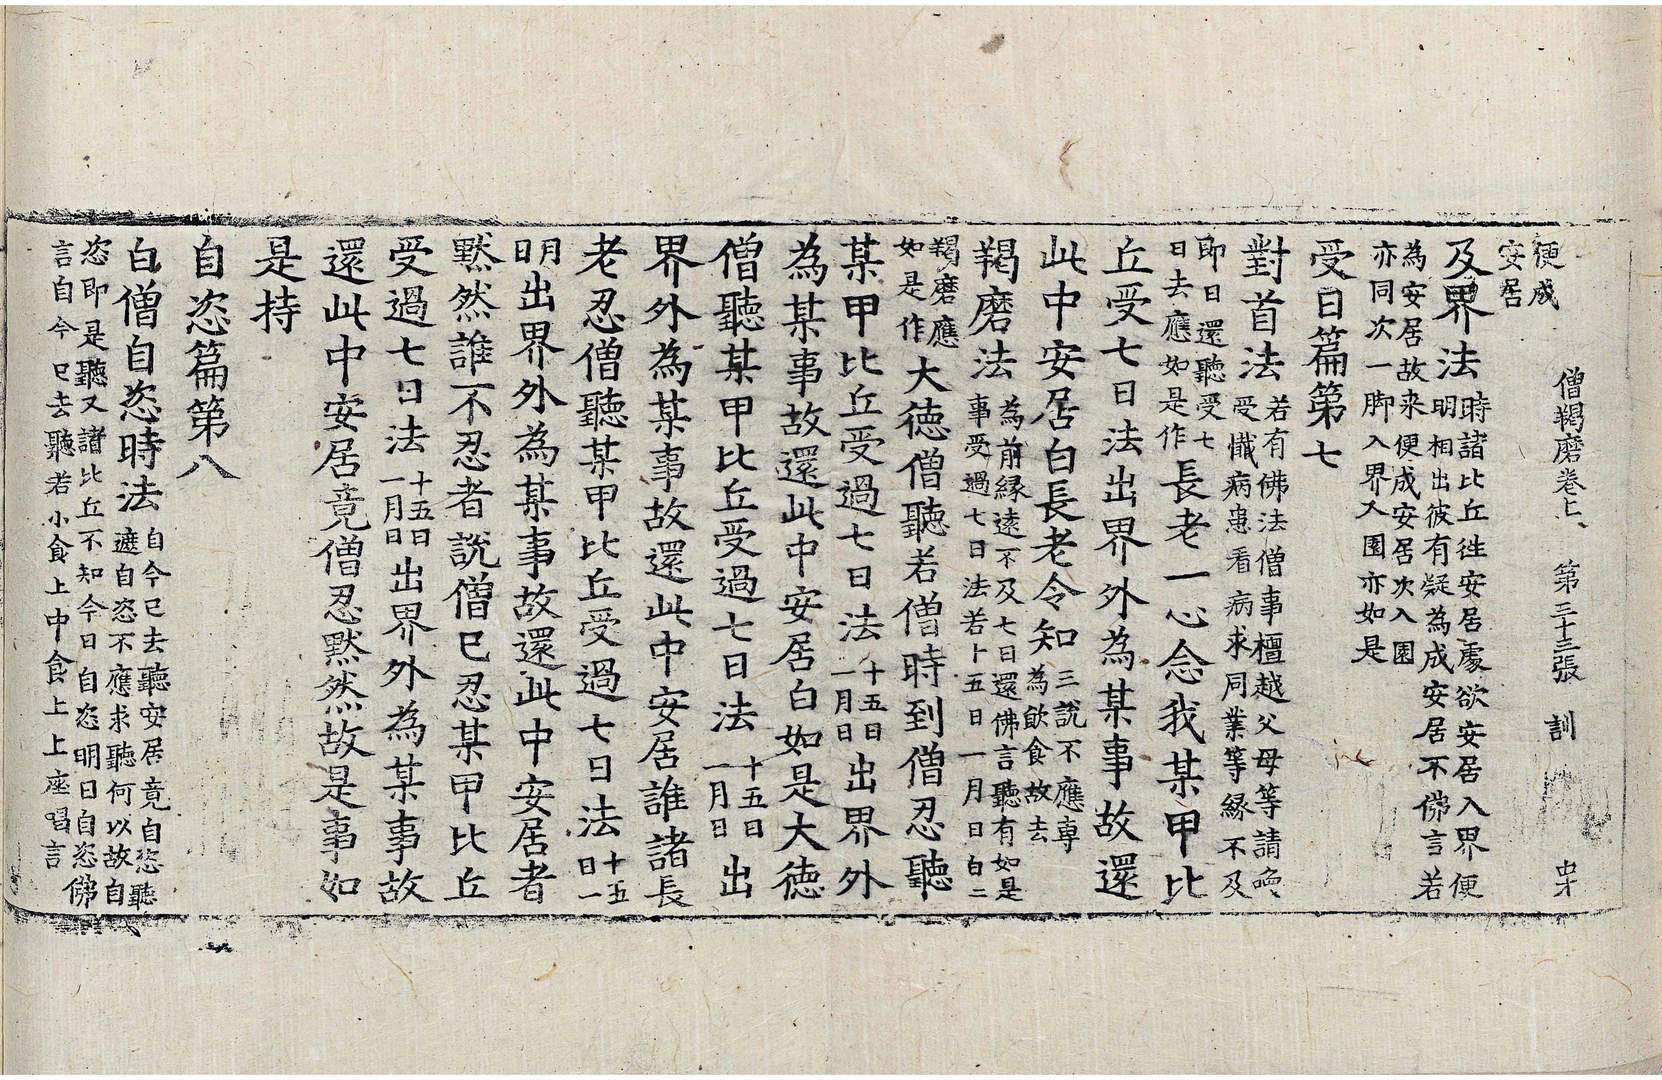 僧羯磨卷上 第三十三張 訓
便成
安居
及界法時諸比丘往安居處欲安居入界便
明相出彼有疑為成安居不佛言若
為安居故来便成安居次入園
亦同次一脚入界入園亦如是
受日篇第七
對首法若有佛法僧事檀越父母等請喚
受懺病患看病求同業等縁不及
即日還聽受七
日去應如是作長老一心念我某甲比
丘受七日法出界外為某事故還
此中安居白長老令知三説不應專
為飲食故去
羯磨法為前縁遠不及七日還佛言聽有如是
事受過七日法若十五日一月日白二
羯磨應
如是作大德僧聽若僧時到僧忍聽
某甲比丘受過七日法十五日
一月日出界外
為某事故還此中安居白如是大德
僧聽某甲比丘受過七日法十五日
一月日出
界外為某事故還此中安居誰諸長
老忍僧聽某甲比丘受過七日法十五
日一
月
日出界外為某事故還此中安居者
默然誰不忍者説僧已忍某甲比丘
受過七日法十五日
一月日出界外為某事故
還此中安居竟僧忍默然故是事如
是持
自恣篇第八
白僧自恣時法自今已去聽安居竟自恣聽
遮自恣不應求聽何以故自
恣即是聽又諸比丘不知今日自恣明日自恣佛
言自今已去聽若小食上中食上上座唱言